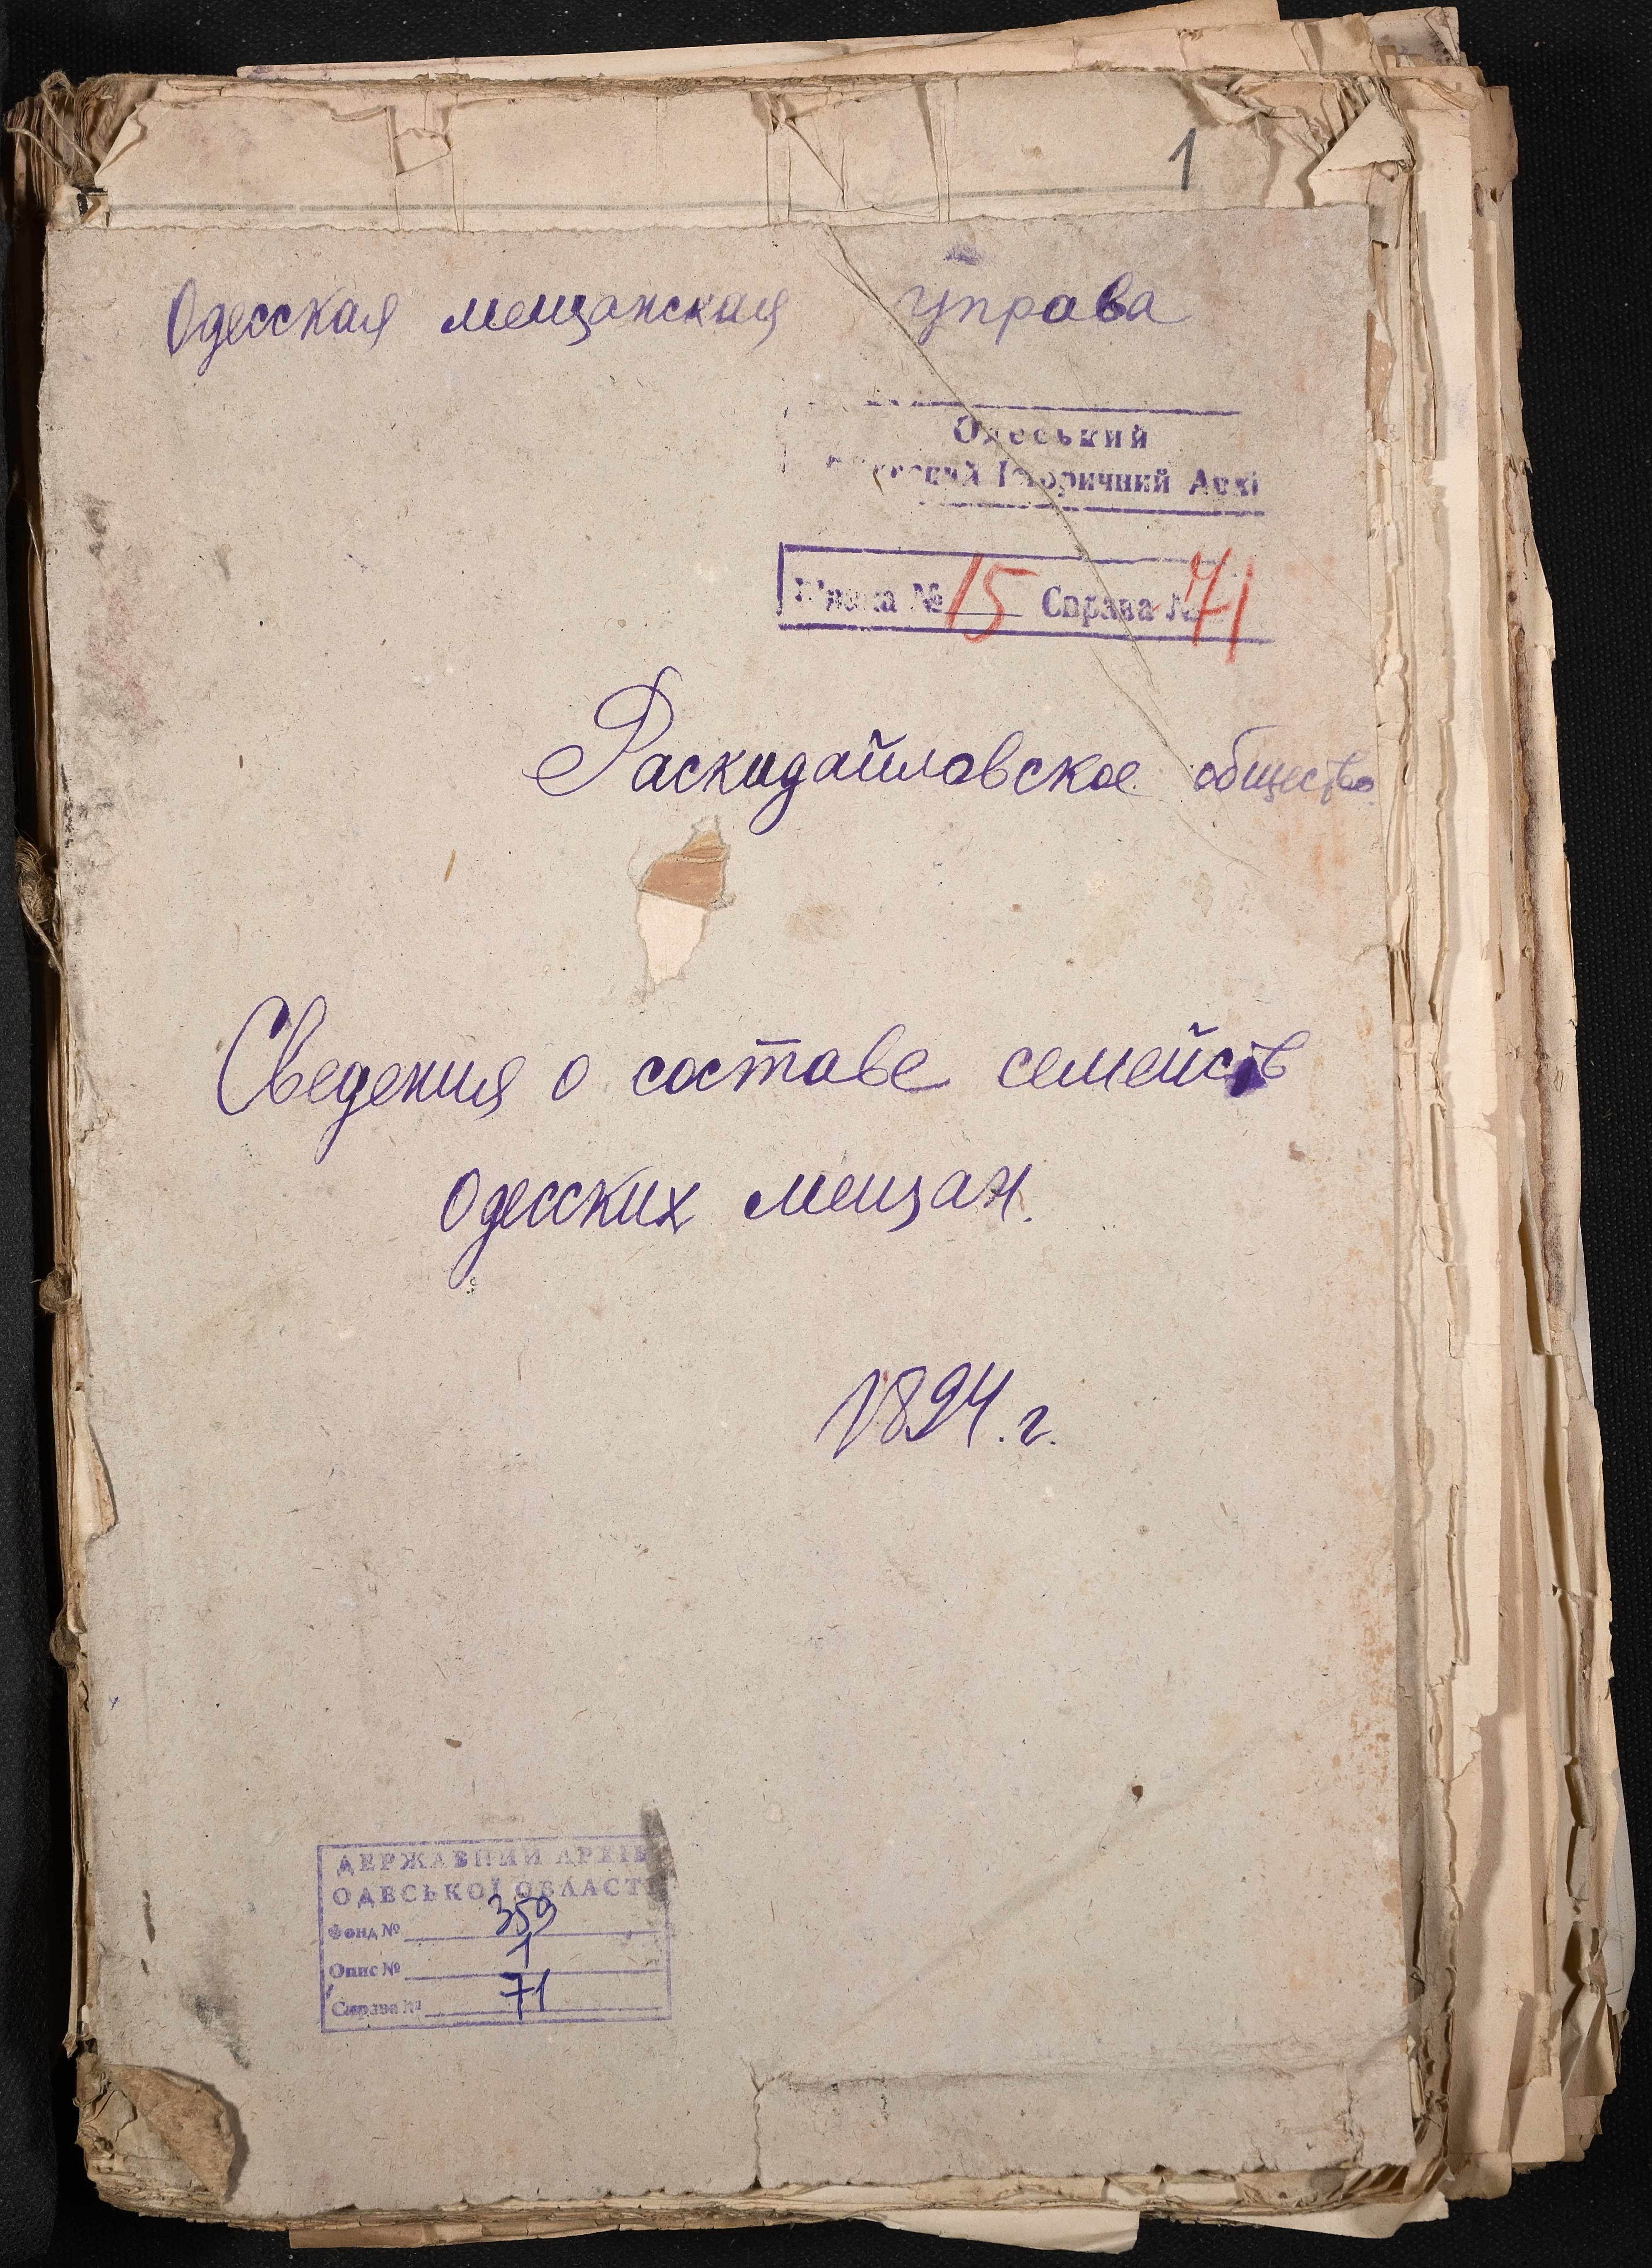 1
Одесская мещанская управа
Одеський
Історичний Архі
В'язка № 15 Справа № 71
Раскидайловское общество
Сведения о составе семейств
одесских мещан.
1894.г.
ДЕРЖАВНИЙ АРХІВ
ОДЕСЬКОЇ ОБЛАСТІ
Фонд № 359
Опис № 1
Справа № 71